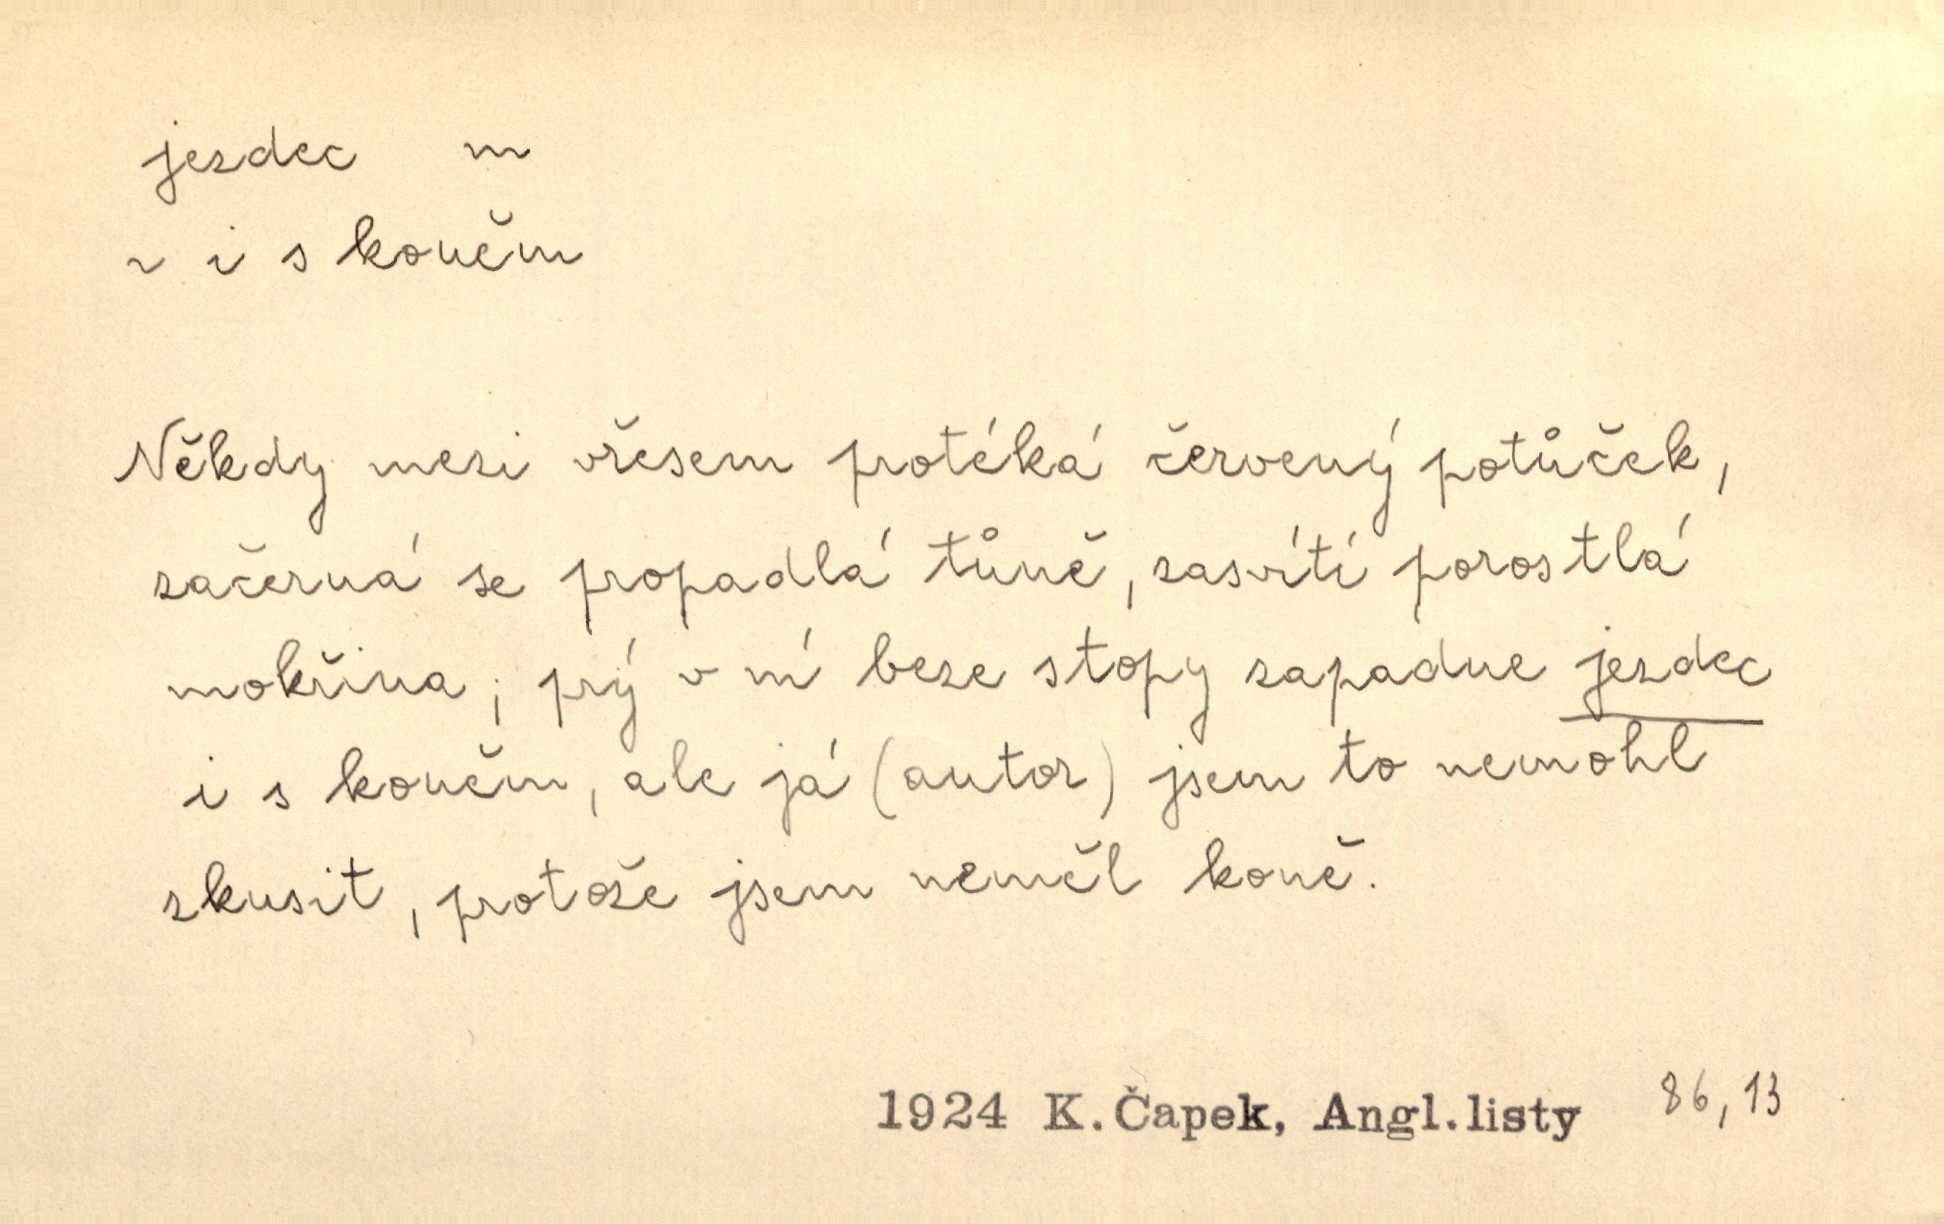 jezdec m
~ i s koněm
Někdy mezi vřesem protéká červený potůček,
začerná se propadlá tůně, zasvítí porostlá
mokřina; prý v ní beze stopy zapadne jezdec
i s koněm, ale já (autor) jsem to nemohl
zkusit, protože jsem neměl koně.
1924 K. Čapek, Angl. listy 86, 13